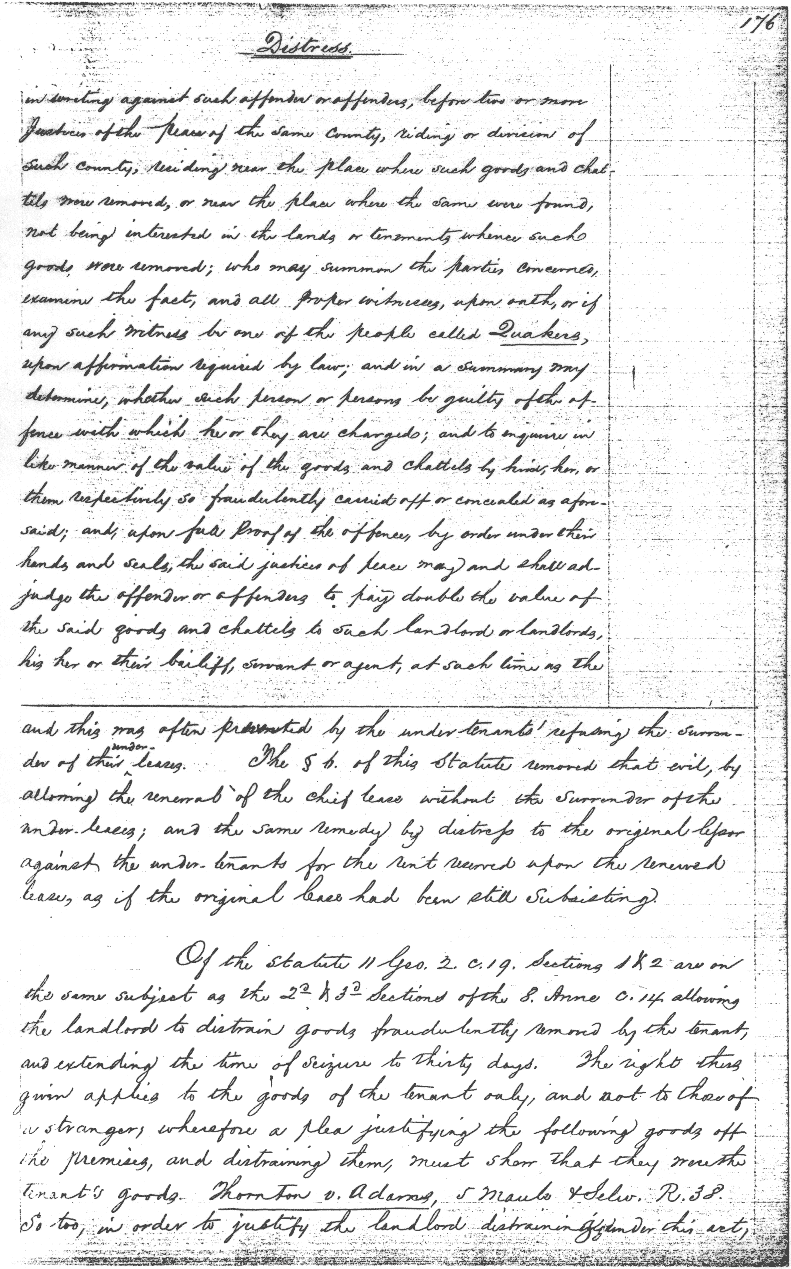 176
Distress.
in writing against such offender or offenders, before two or more
Justices of the Peace of the same County, riding or division of
such county, residing near the place where such goods and chat-
tels were removed, or near the place where the same were found,
not being interested in the lands or tenements whence such
goods were removed; who may summon the parties concerned,
examine the fact, and all proper witnesses, upon oath, or if
any such witness be one of the people called Quakers,
upon affirmation required by law; and in a summary way
determine, whether such person or persons be guilty of the of-
fence with which he or they are charged; and to enquire in
like manner of the value of the goods and chattels by him, her, or
them respectively so fraudulently carried off or concealed as afore-
said; and, upon full Proof of the offence, by order under their
hands and seals, the said justices of peace may and shall ad-
judge the offender or offenders to pay double the value of
the said goods and chattels to such landlord or landlords,
his her or their bailiff, servant or agent, at such time as the
and this was often prevented by the under tenants' refusing the surren-
der of their under-leases. The § 6. of this Statute removed that evil, by
allowing the renewal of the chief lease without the surrender of the
under-leases; and the same remedy by distress to the original lessor
against the under-tenants for the rent reserved upon the renewed
lease, as if the original lease had been still subsisting.
Of the Statute 11 Geo. 2. c. 19. Sections 1 & 2 are on
the same subject as the 2d & 3d Sections of the 8. Anne c. 14 allowing
the landlord to distrain goods fraudulently removed by the tenant,
and extending the time of seizure to thirty days. The right thus
given applies to the goods of the tenant only, and not to those of
a stranger; wherefore a plea justifying the following goods off
the premises, and distraining them, must show that they were the
tenant's goods. Thornton v. Adams, 5 Maule & Selw. R. 38.
So too, in order to justify the landlord distraining under this act,